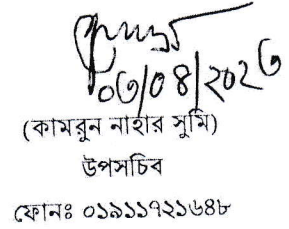 ০৩/০৪/২০২৩
(কামরুন নাহার সুমি)
উপসচিব
ফোনঃ ০১৯১১৭২১৬৪৮